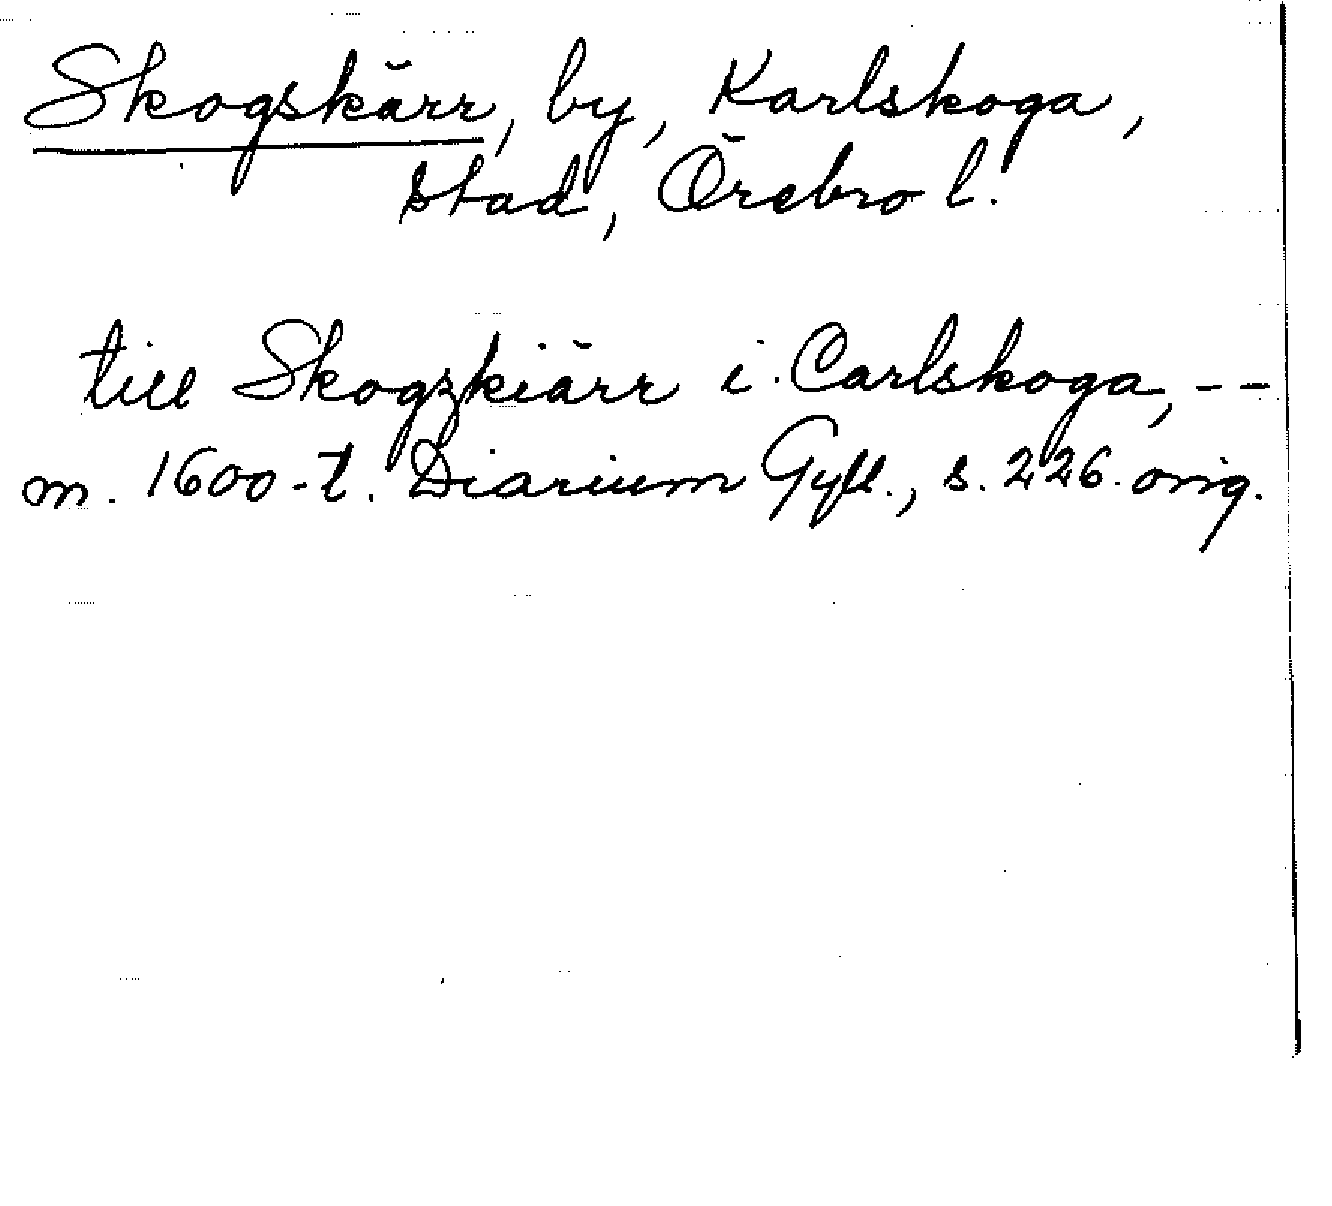 Skogskärr, by, Karlskoga,
stad, Örebro l.
till Skogzkiärr i Carlskoga, --
m. 1600-t. Diarium Gyll., s. 226. orig.